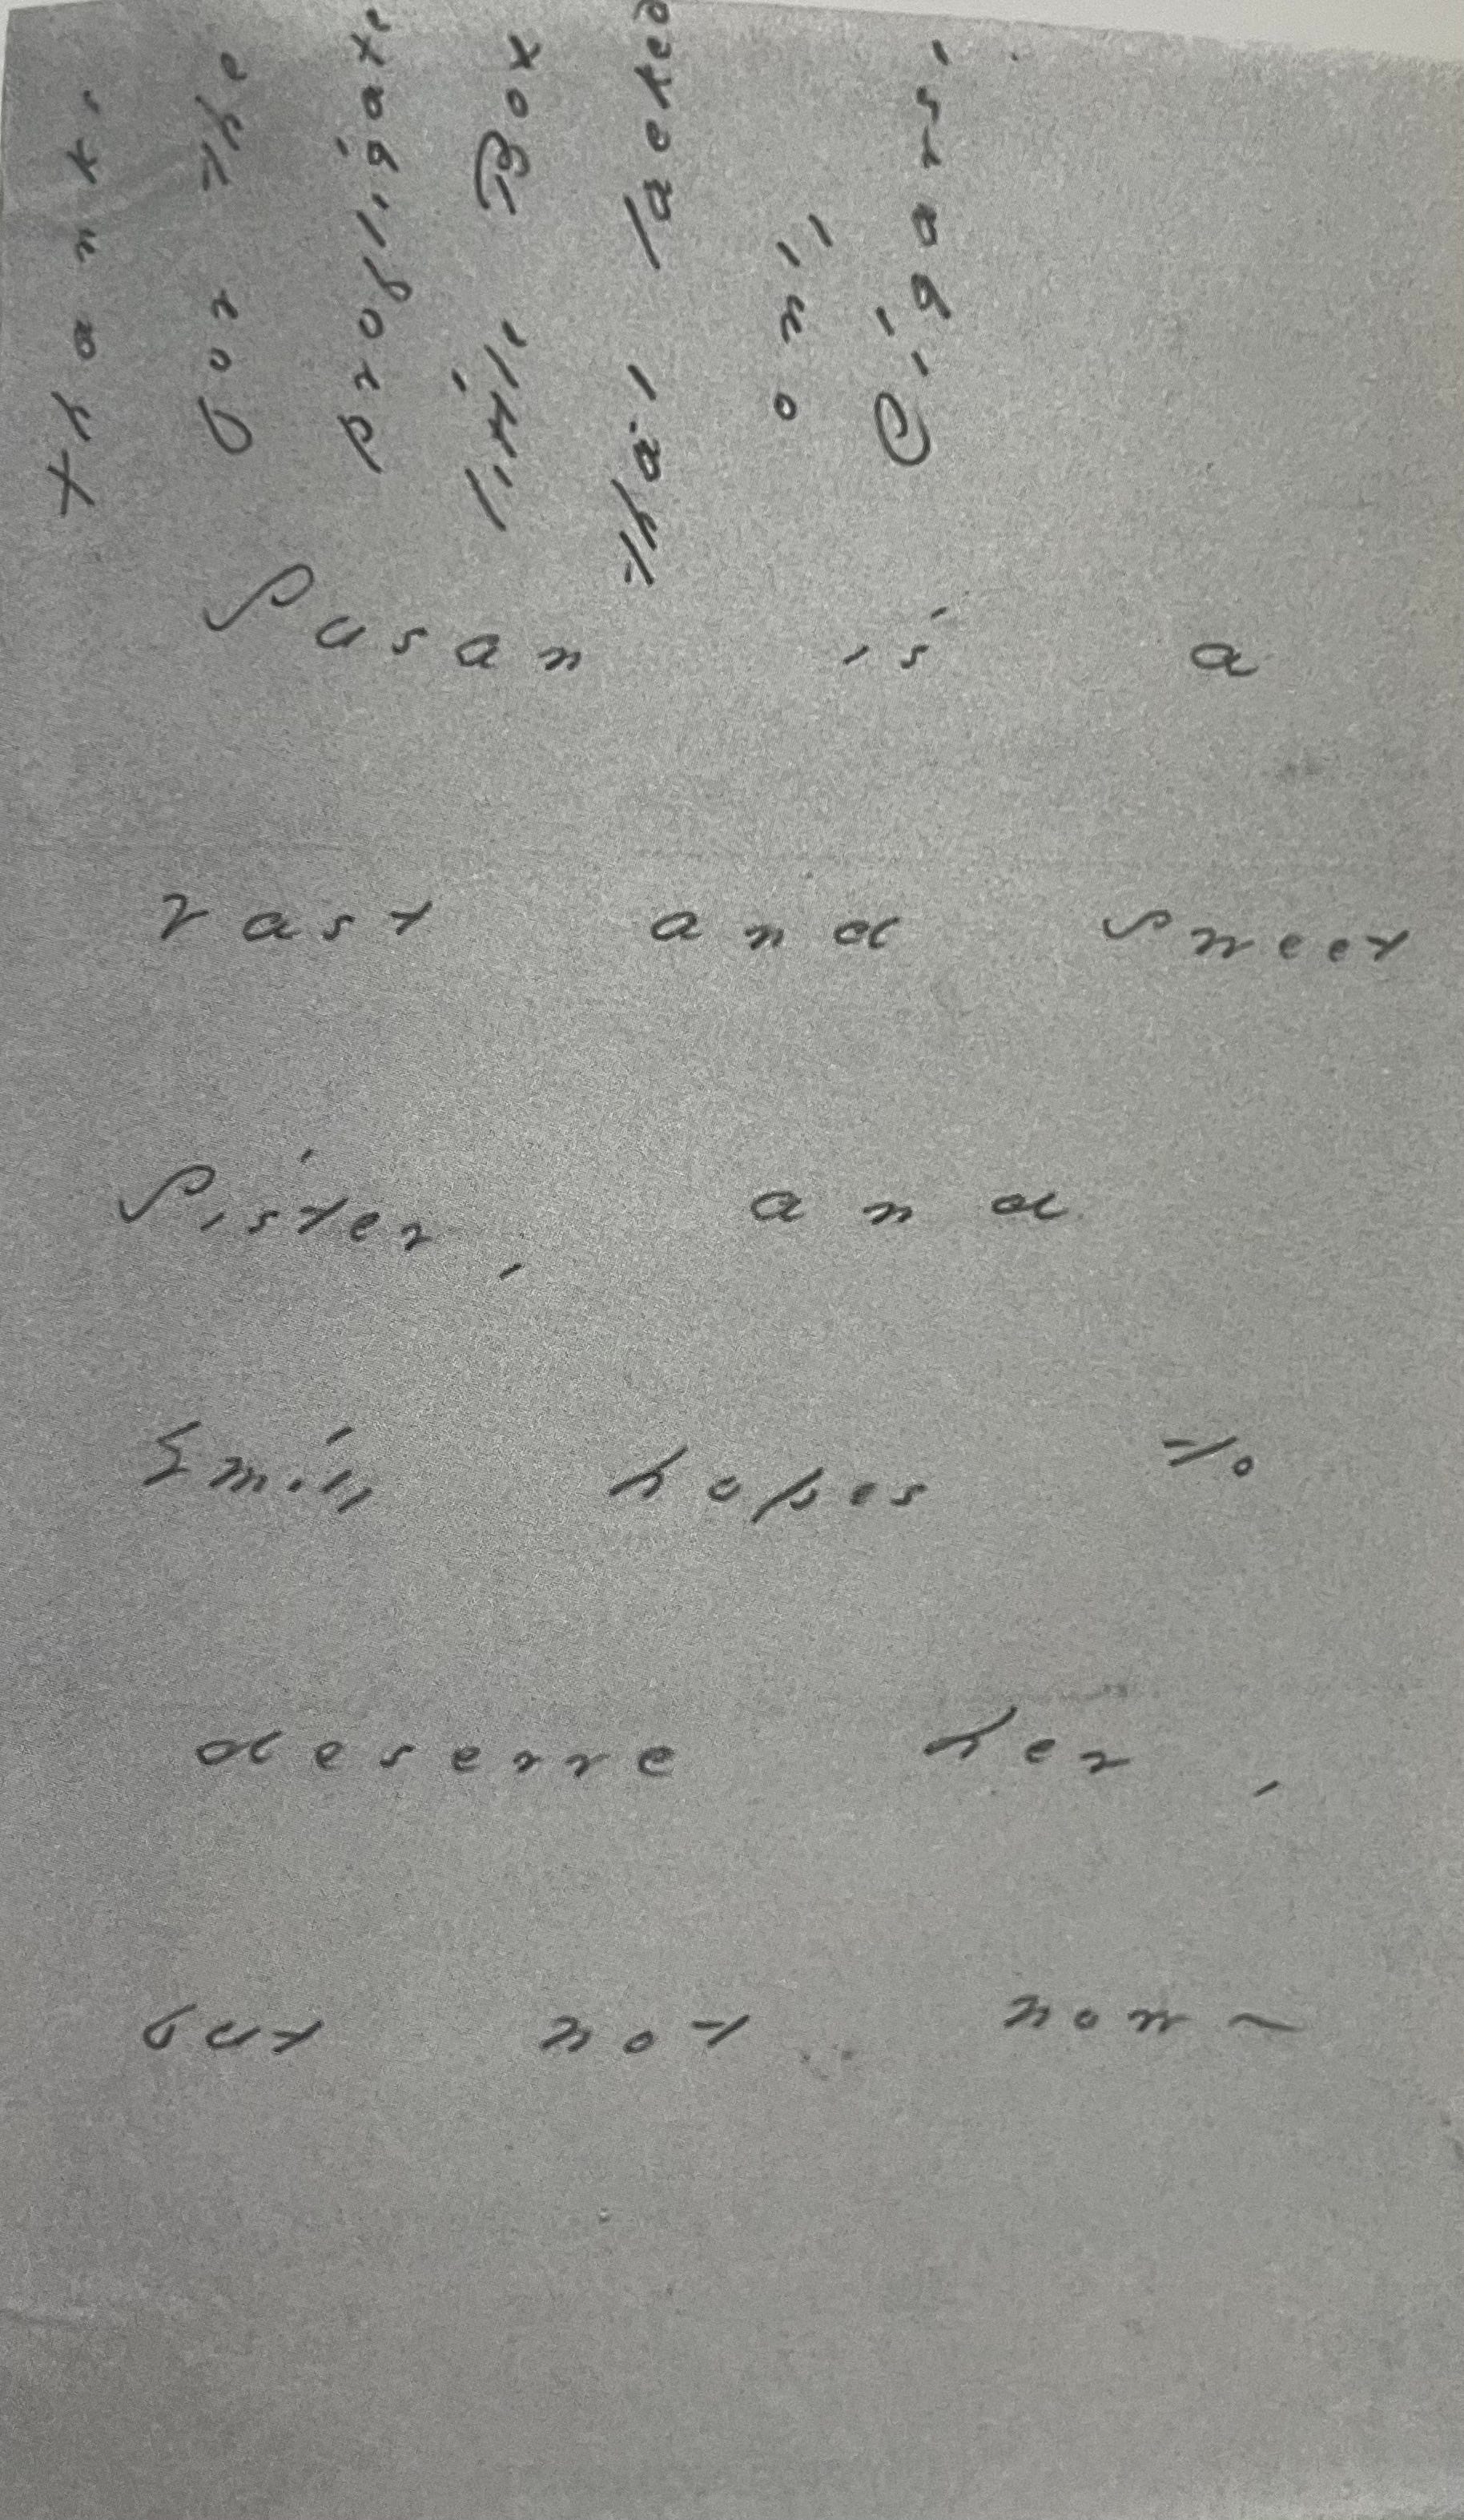 Susan is a
vast and sweet
Sister, and
Emily hopes to
deserve her,
but not now -
Thanks,
for the
profligate
little Box
that lacked
only
Cigars,